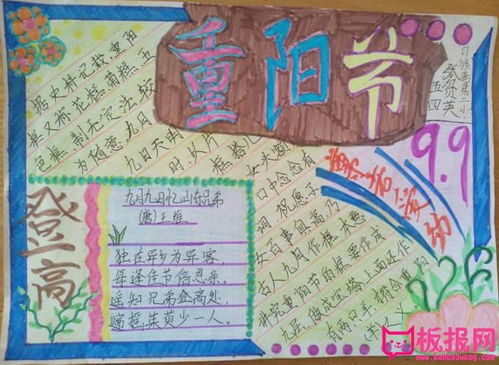 重阳节
9.9
登高
据史料记载重阳
糕又称花糕菊糕五
色糕制无定法较
为随意九月
九日天明
时以片
糕搭
女头额
口中念念有
词祝愿子
女百事俱高乃
古人九月作糕本意
讲究重阳节的糕要作成
九层像宝塔上面还作
有两只羊符合重阳
(羊)义
九月九日忆山东兄弟
(唐)王维
独在异乡为异客
每逢佳节倍思亲
遥知兄弟登高处
遍插茱萸少一人
板报网